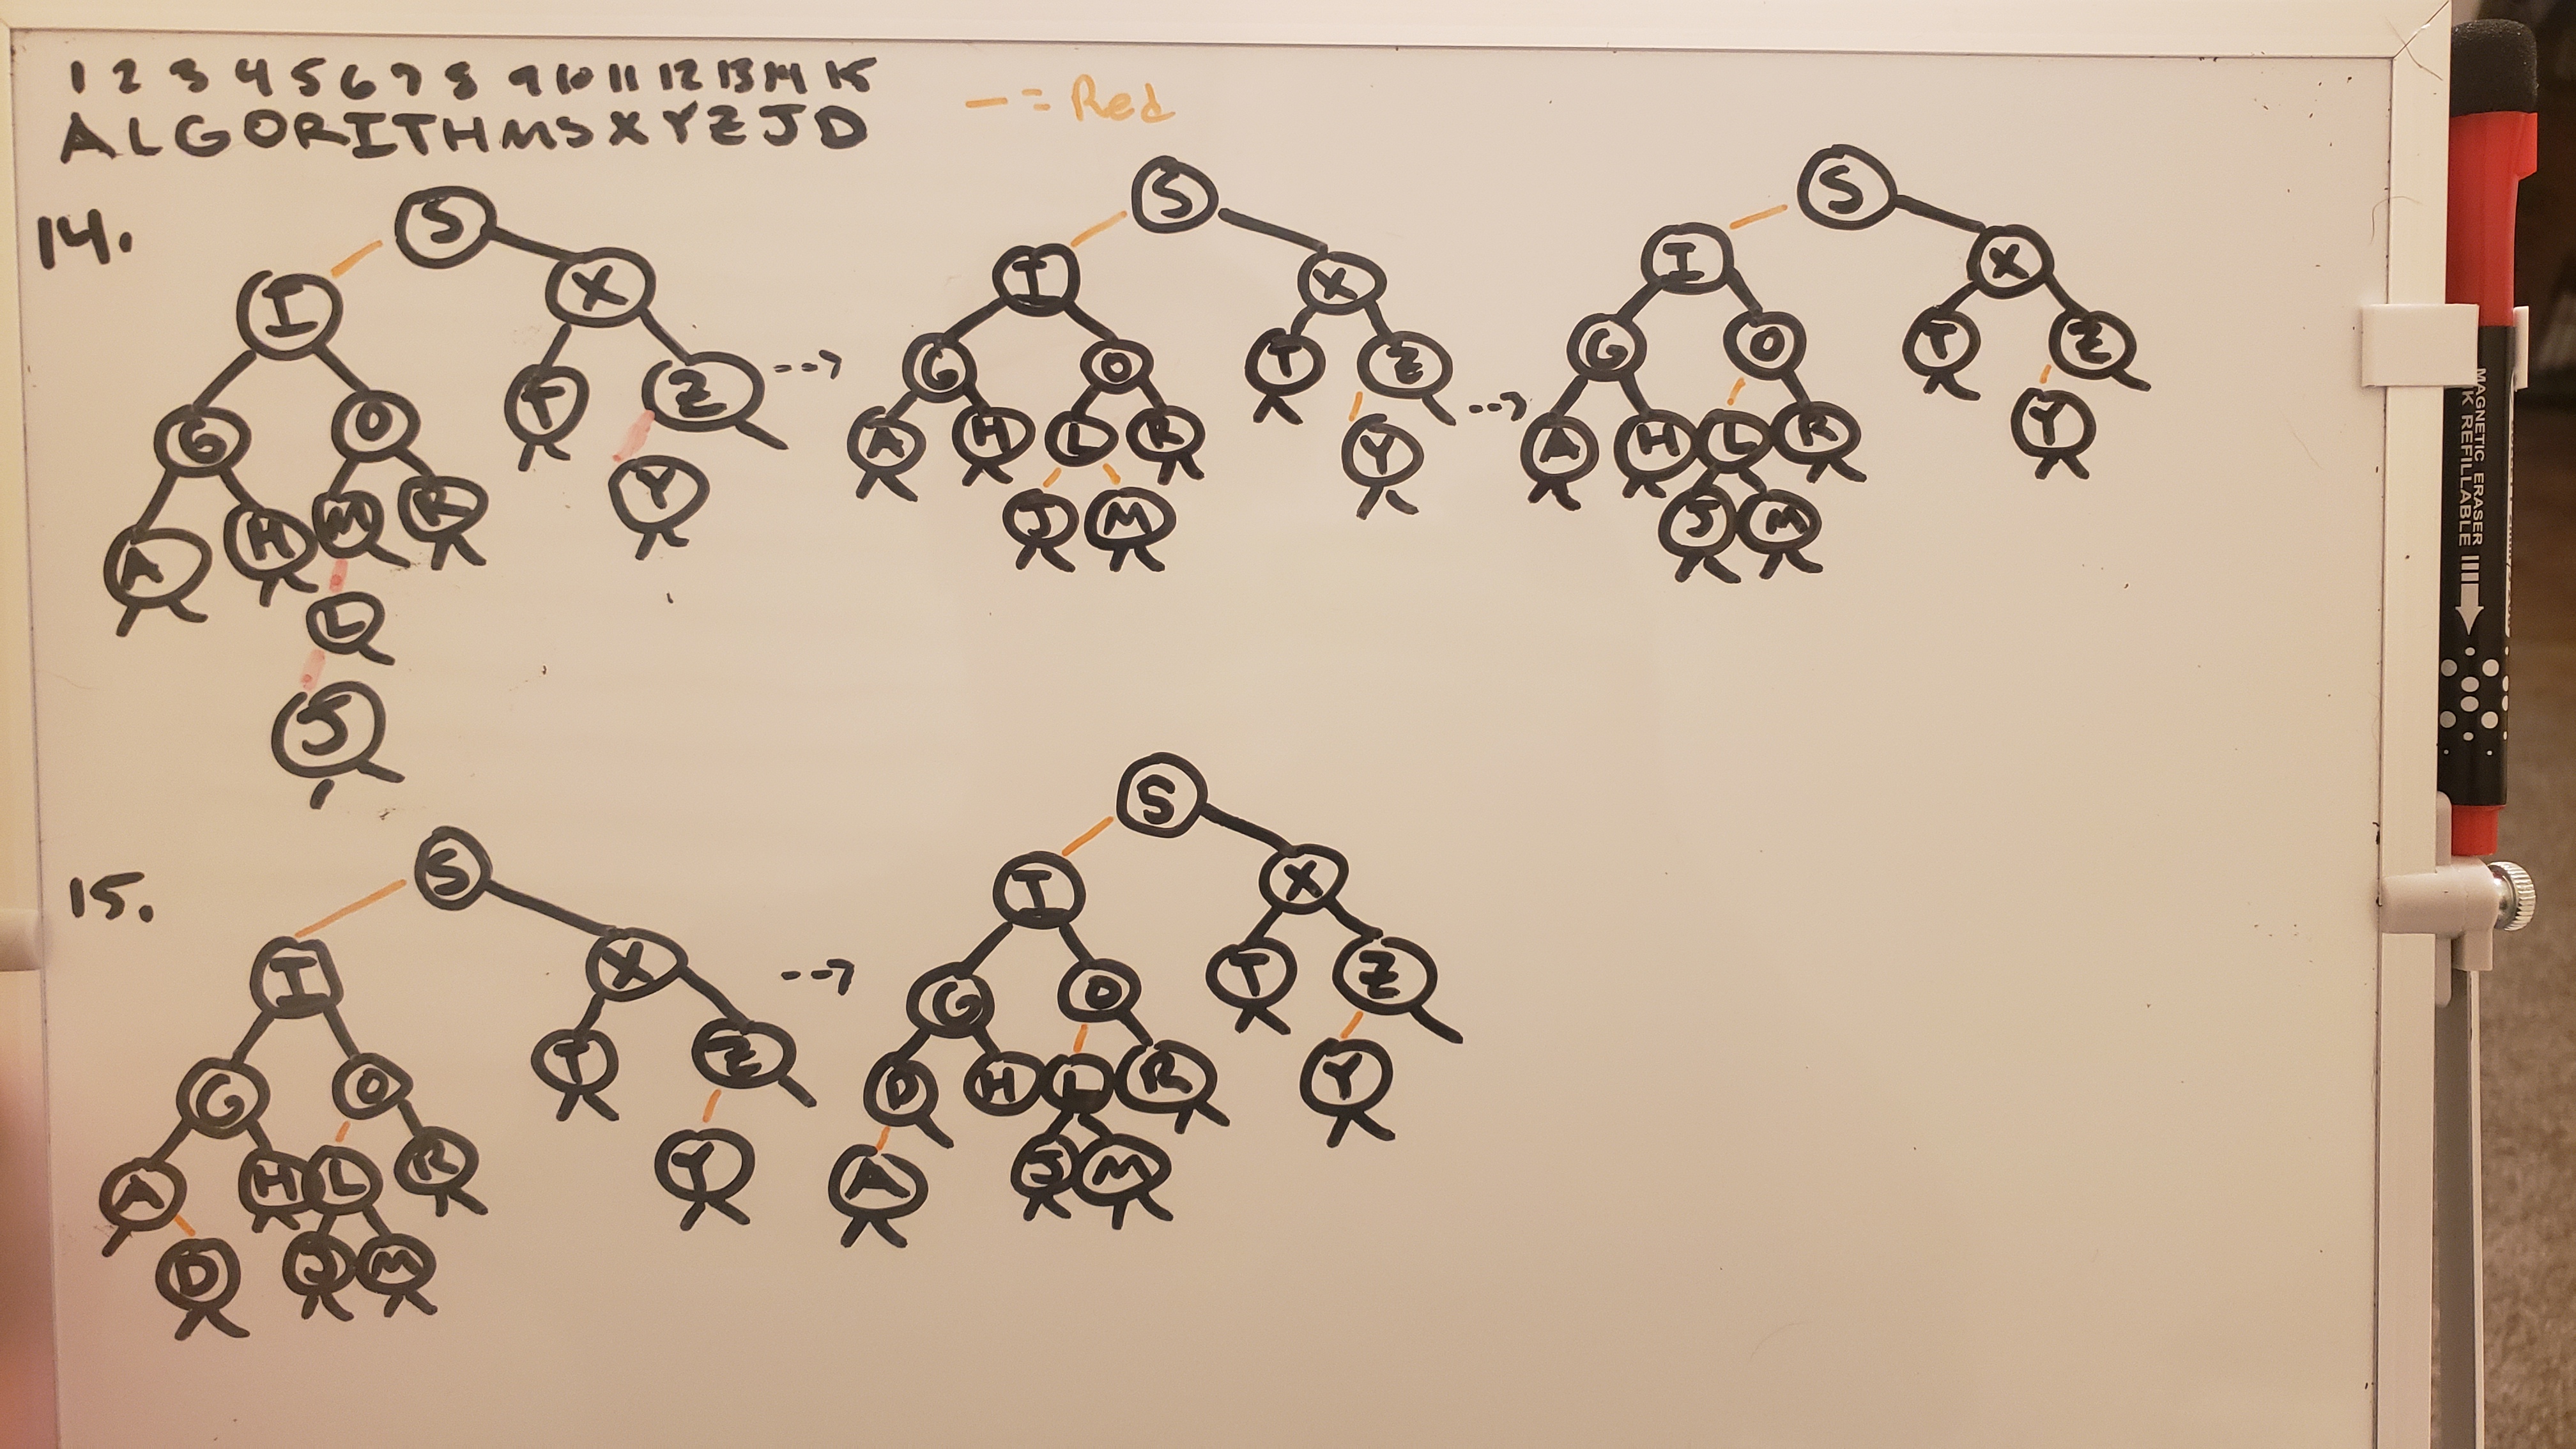 1 2 3 4 5 6 7 8 9 10 11 12 13 14 15
ALGORITHMSXYZJD
— = Red
14.
S
I X
G O T Z
A H M R Y
L
J
-->
S
I X
G O T Z
A H L R Y
J M
-->
S
I X
G O T Z
A H L R Y
J M
15.
S
I X
G O T Z
A H L R Y
D J M
-->
S
I X
G O T Z
D H L R Y
A J M
MAGNETIC ERASER
INK REFILLABLE